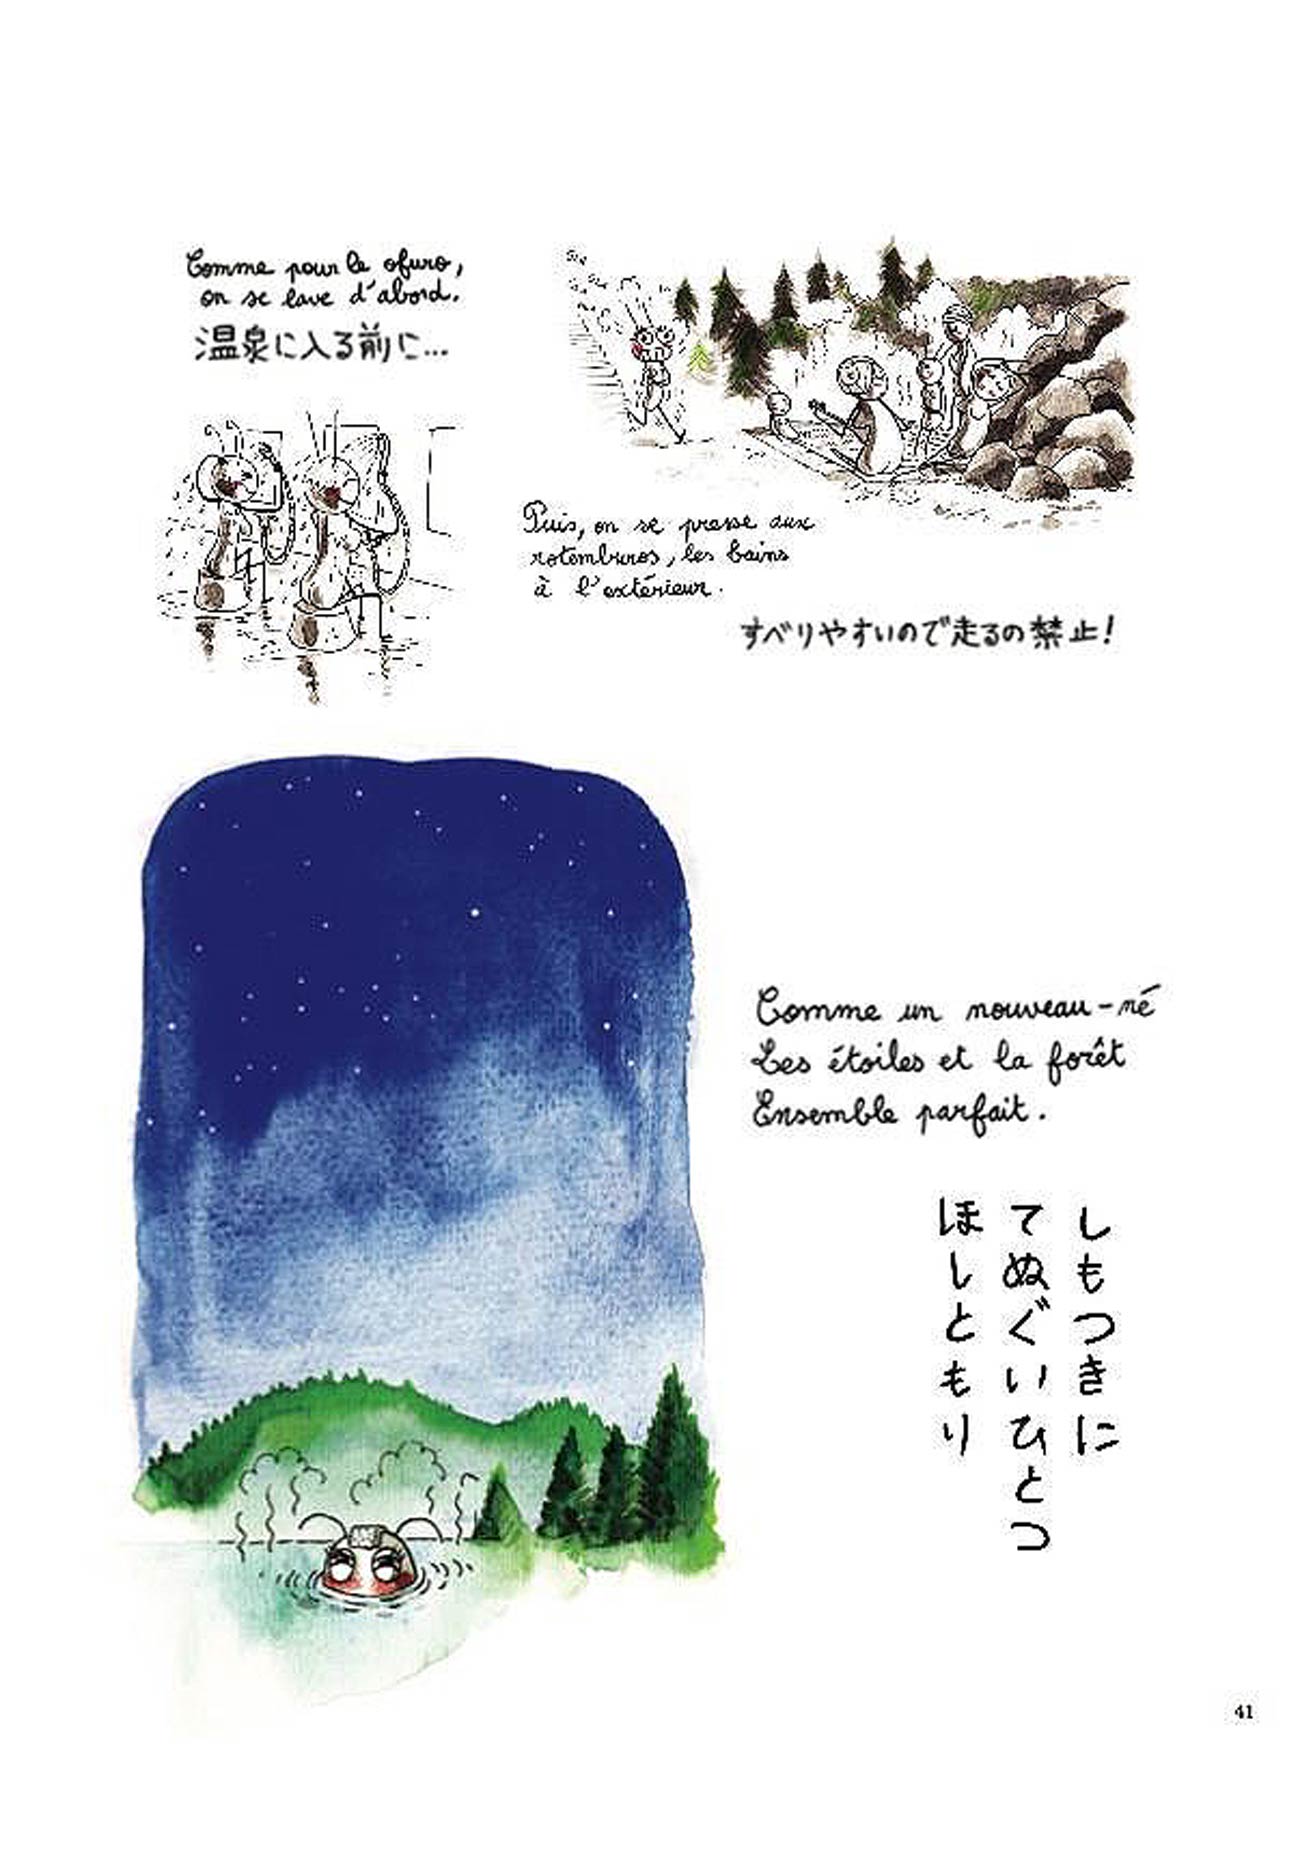 Comme pour le ofuro,
on se lave d'abord.
温泉に入る前に...
Puis, on se presse aux
rotemburos, les bains
à l'extérieur.
すべりやすいので走るの禁止!
Comme un nouveau-né
Les étoiles et la forêt
Ensemble parfait.
しもつきに
てぬぐいひとつ
ほしともり
41